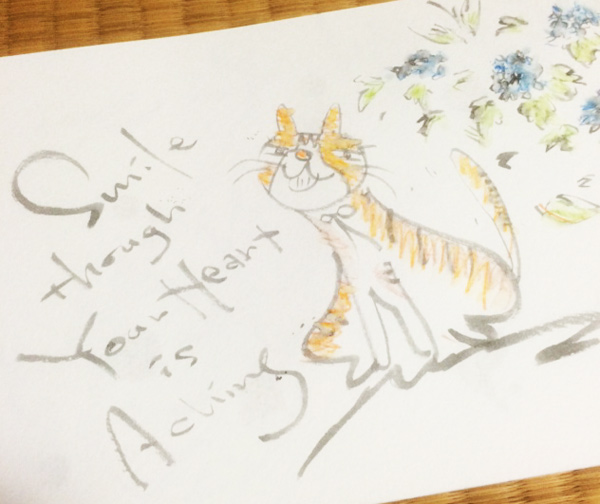 Smile
though
Your Heart
is
Aching